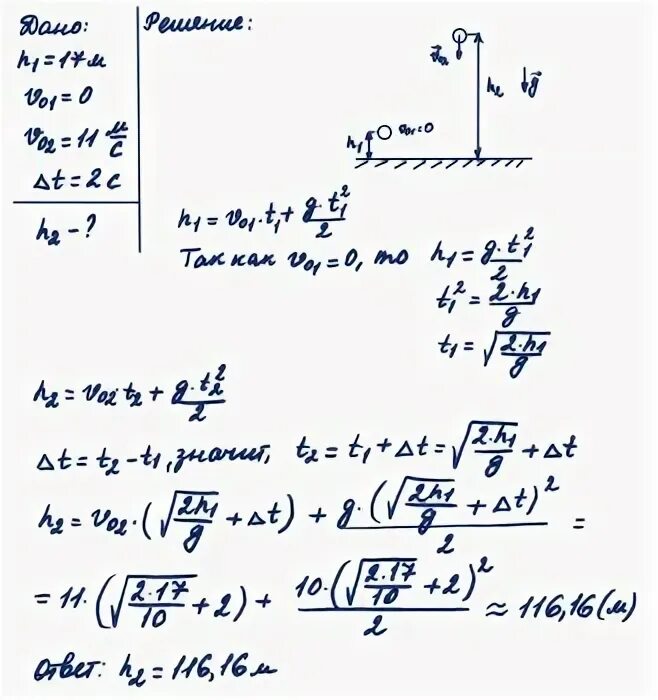 Дано:
h₁ = 17 м
v₀₁ = 0
v₀₂ = 11 м/с
Δt = 2 с
h₂ - ?
Решение:
v⃗₀₂
h₂
g⃗
h₁
v⃗₀₁ = 0
h₁ = v₀₁·t₁ + g·t₁²/2
Так как v₀₁ = 0, то h₁ = g·t₁²/2
t₁² = 2·h₁/g
t₁ = √(2·h₁/g)
h₂ = v₀₂·t₂ + g·t₂²/2
Δt = t₂ - t₁, значит, t₂ = t₁ + Δt = √(2·h₁/g) + Δt
h₂ = v₀₂·(√(2h₁/g) + Δt) + g·(√(2h₁/g) + Δt)²/2 =
= 11·(√(2·17/10) + 2) + 10·(√(2·17/10) + 2)²/2 ≈ 116,16 (м)
Ответ: h₂ = 116,16 м